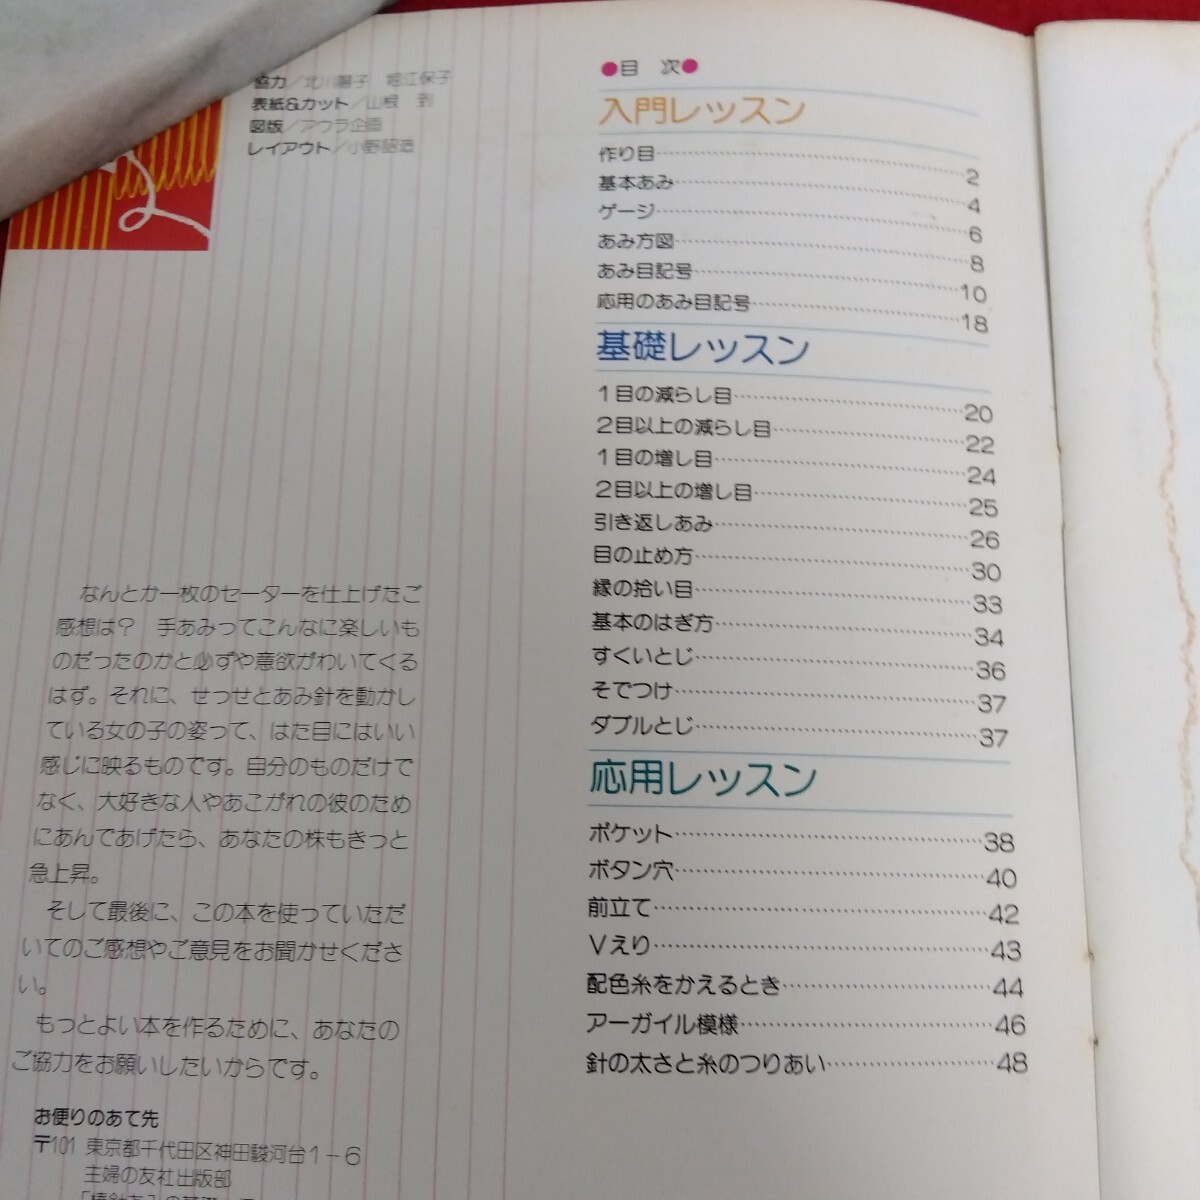 協力/北川 子 堀江保子
表紙&カット/山根 到
図版/アウラ企画
レイアウト/小野昭造
なんとか一枚のセーターを仕上げたご
感想は? 手あみってこんなに楽しいも
のだったのかと必ずや意欲がわいてくる
はず。それに、せっせとあみ針を動かし
ている女の子の姿って、はた目にはいい
感じに映るものです。自分のものだけで
なく、大好きな人やあこがれの彼のため
にあんであげたら、あなたの株もきっと
急上昇。
そして最後に、この本を使っていただ
いてのご感想やご意見をお聞かせくださ
い。
もっとよい本を作るために、あなたの
ご協力をお願いしたいからです。
お便りのあて先
〒101 東京都千代田区神田駿河台1-6
主婦の友社出版部
●目 次●
入門レッスン
作り目……2
基本あみ……4
ゲージ……6
あみ方図……8
あみ目記号……10
応用のあみ目記号……18
基礎レッスン
1目の減らし目……20
2目以上の減らし目……22
1目の増し目……24
2目以上の増し目……25
引き返しあみ……26
目の止め方……30
縁の拾い目……33
基本のはぎ方……34
すくいとじ……36
そでつけ……37
ダブルとじ……37
応用レッスン
ポケット……38
ボタン穴……40
前立て……42
Vえり……43
配色糸をかえるとき……44
アーガイル模様……46
針の太さと糸のつりあい……48